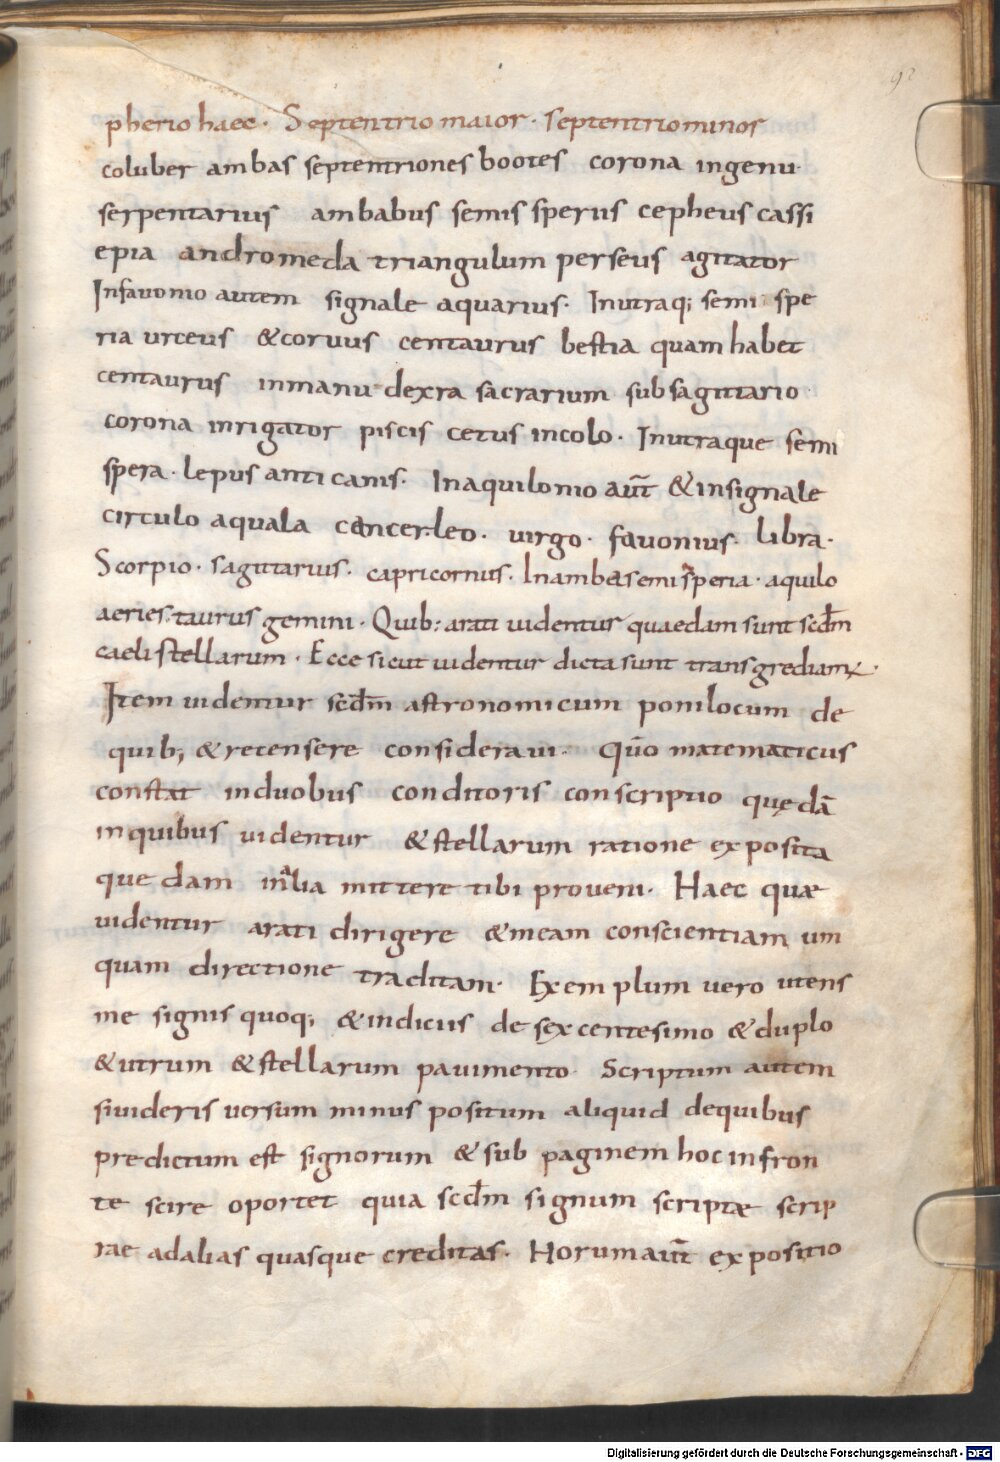 92
pherio haec. Septentrio maior. septentrio minor
coluber ambas septentriones bootes corona ingenu
serpentarius ambabus semis sperus cepheus cassi
epia andromeda triangulum perseus agitator
Infavonio autem signale aquarius. Inutraq; semi spe
ria urceus & coruus centaurus bestia quam habet
centaurus inmanu dexra sacrarium sub sagittario
corona inrigator piscis cetus incolo. Inutraque semi
spera. lepus anti canis. Inaquilonio aūt & insignale
circulo aquala cancer. leo. uirgo. favonius. libra.
Scorpio. sagittarius. capricornus. Inambasemisperia. aquilo
aeries. taurus gemini. Quib: arati uidentur quaedam sunt scdm̄
caeli stellarum. Ecce sicut uidentur dicta sunt transgrediam
Item uidentur scdm̄ astronomicum poni locum de
quib; & recensere consideraui. Quō matematicus
constat induobus conditoris conscriptio quędā
inquibus uidentur & stellarum ratione exposita
quedam mittere tibi proueni. Haec quæ
uidentur arati dirigere & meam conscientiam um
quam directione traditam. Exemplum uero utens
me signis quoq; & indicus de sexcentesimo & duplo
& utrum & stellarum pauimento. Scriptum autem
siuideris uersum minus positum aliquid dequibus
predictum est signorum & sub paginem hoc infron
te scire oportet quia scdm̄ signum scriptæ scrip
rae adalias quasque creditas. Horum aūt expositio
Digitalisierung gefördert durch die Deutsche Forschungsgemeinschaft - DFG